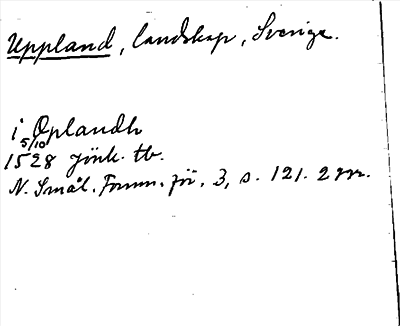 Uppland, landskap, Sverige.
i Oplandh
5/10
1528 Jönk. tb.
N. Smål. Fornm. för. 3, s. 121. 2 ggr.